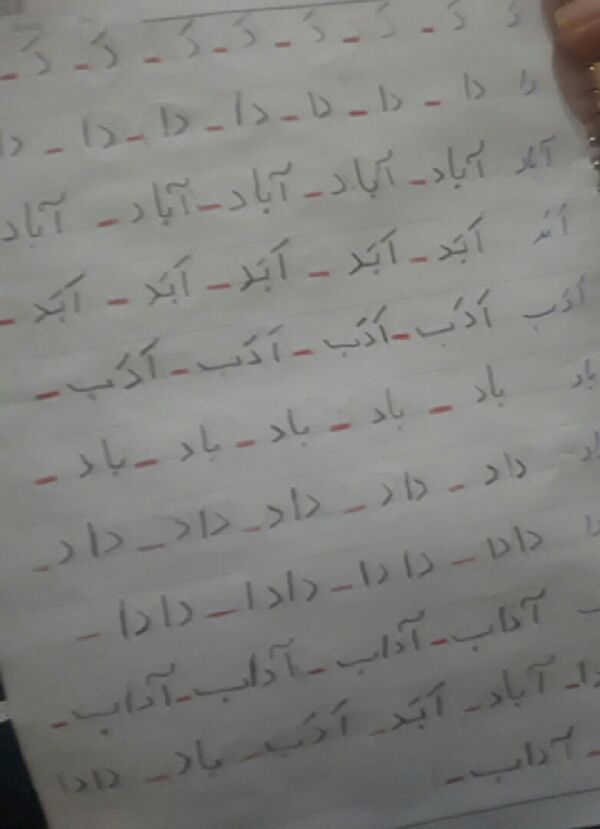 دَ دَ - دَ - دَ - دَ - دَ - دَ - دَ -
دا دا - دا - دا - دا - دا - دا - دا
آباد آباد - آباد - آباد - آباد - آباد
اَبَد اَبَد - اَبَد - اَبَد - اَبَد - اَبَد -
اَدَب اَدَب - اَدَب - اَدَب - اَدَب -
باد باد - باد - باد - باد - باد -
داد - داد - داد - داد - داد -
دادا - دادا - دادا - دادا -
آداب - آداب - آداب - آداب -
آباد - اَبَد - اَدَب - باد - دادا
- آداب -